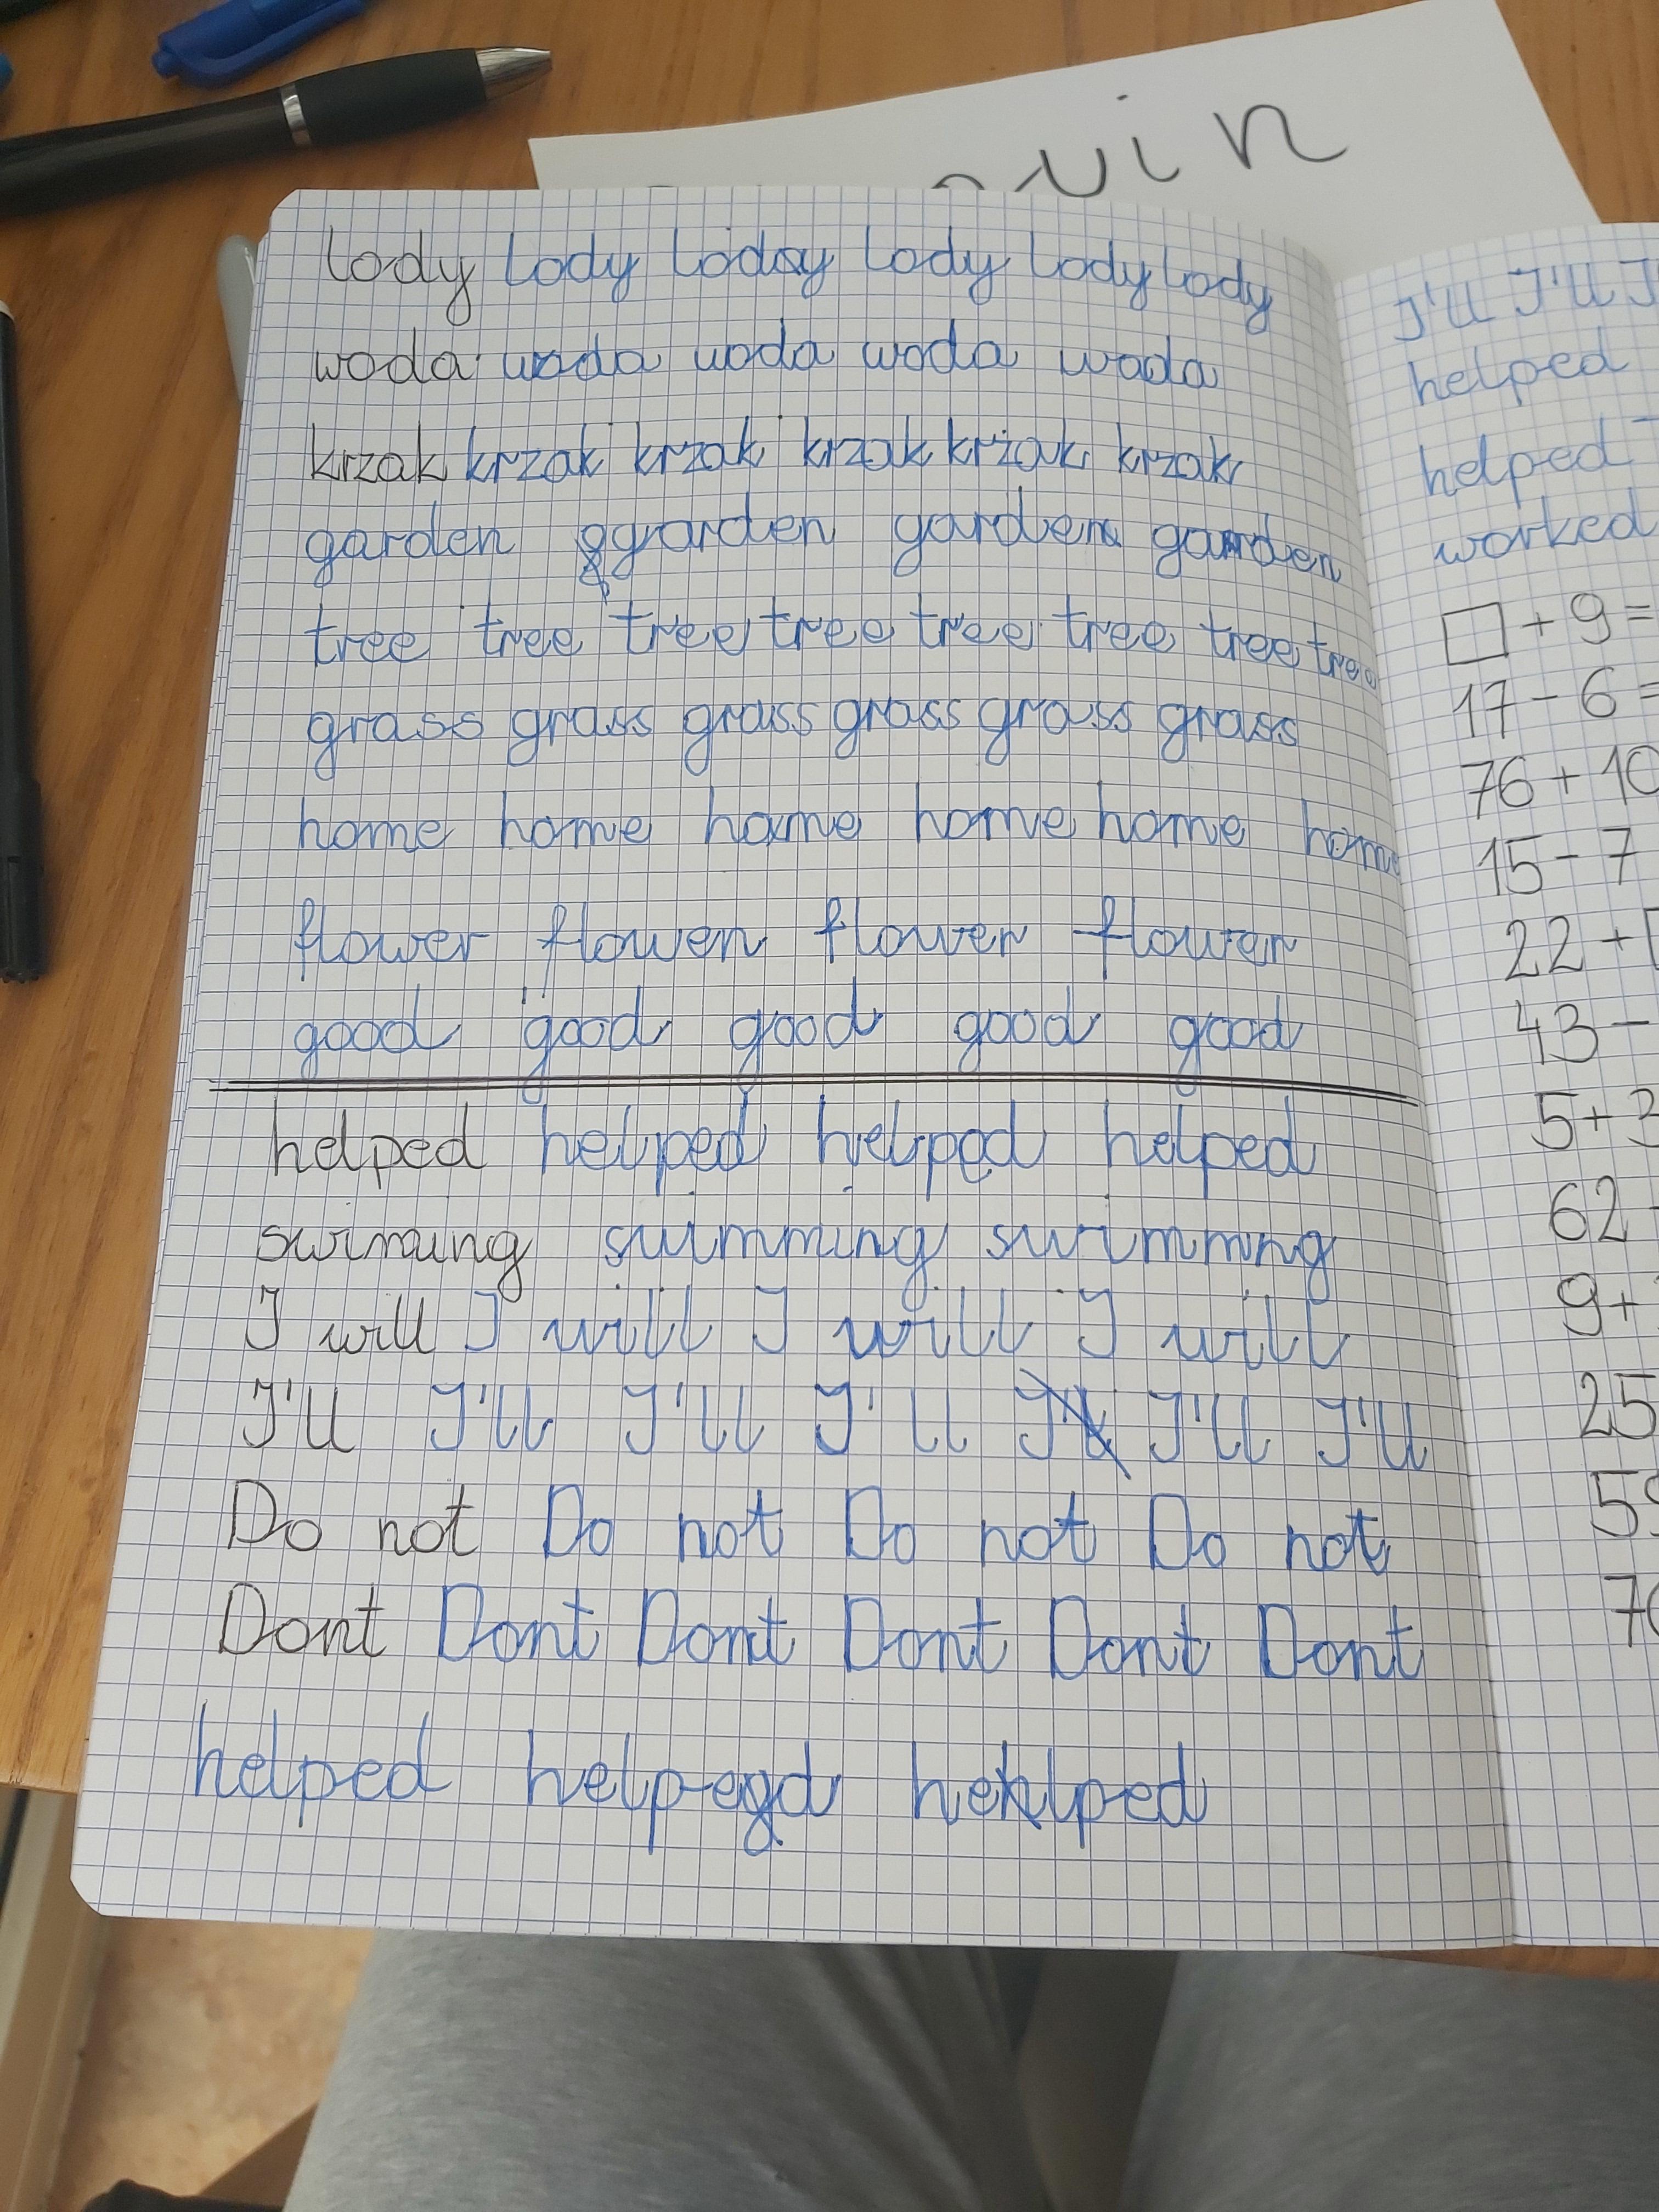 uin
lody lody lodsy lody lody lody
woda woda woda woda woda
krzak krzak krzak krzak krzak krzak
garden garden garden garden
tree tree tree tree tree tree tree tree
grass grass grass grass grass grass
home home home home home home
flower flower flower flower
good good good good good
helped helped helped helped
swimming swimming swimming
I will I will I will I will
I'll I'll I'll I'll I'll I'll I'll
Do not Do not Do not Do not
Dont Dont Dont Dont Dont Dont
helped helped helped
I'll I'll I
helped
helped
worked
□ + 9 =
17 - 6 =
76 + 10
15 - 7
22 +
43 -
5 + 3
62
9 +
25
59
70